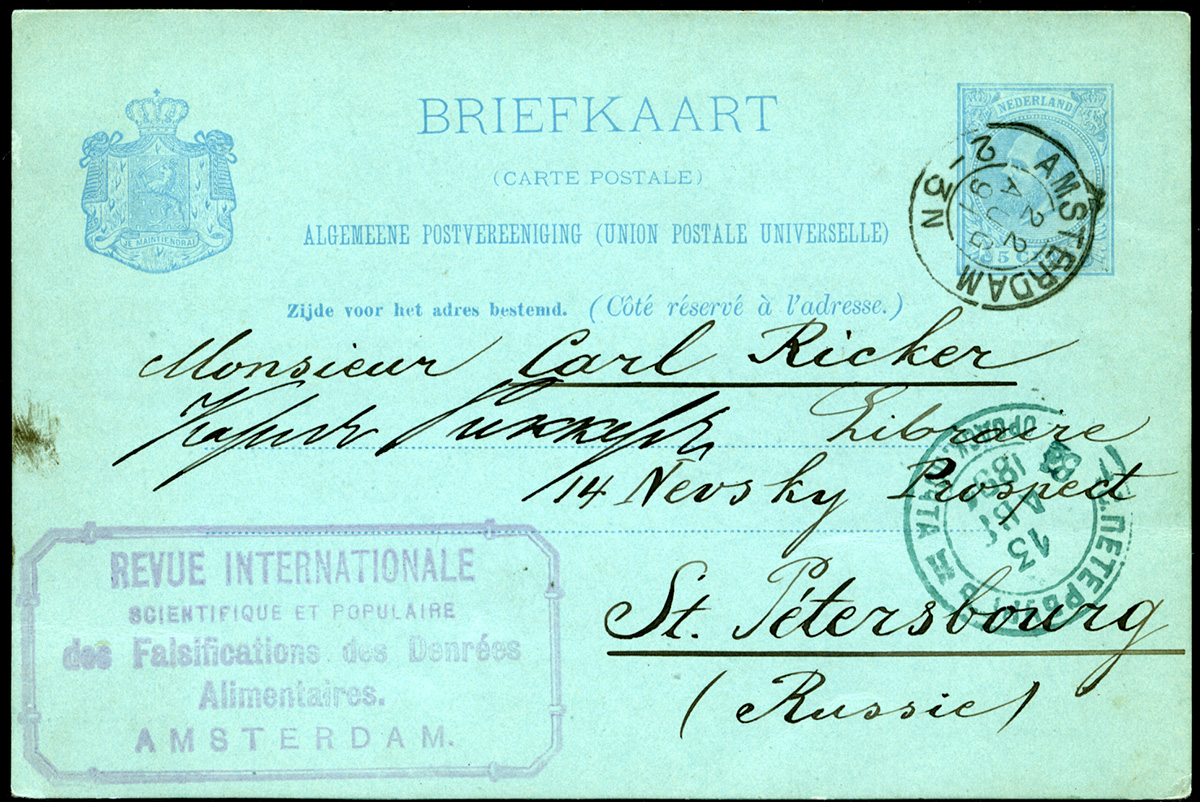 BRIEFKAART
(CARTE POSTALE)
ALGEMEENE POSTVEREENIGING (UNION POSTALE UNIVERSELLE)
Zijde voor het adres bestemd. (Côté réservé à l'adresse.)
JE MAINTIENDRAI
NEDERLAND
5 C
AMSTERDAM
2-3N
Monsieur Carl Ricker
Libraire
14 Nevsky Prospect
St. Pétersbourg
(Russie)
13
АВГ
ПОЧТА
REVUE INTERNATIONALE
SCIENTIFIQUE ET POPULAIRE
des Falsifications des Denrées
Alimentaires.
AMSTERDAM.